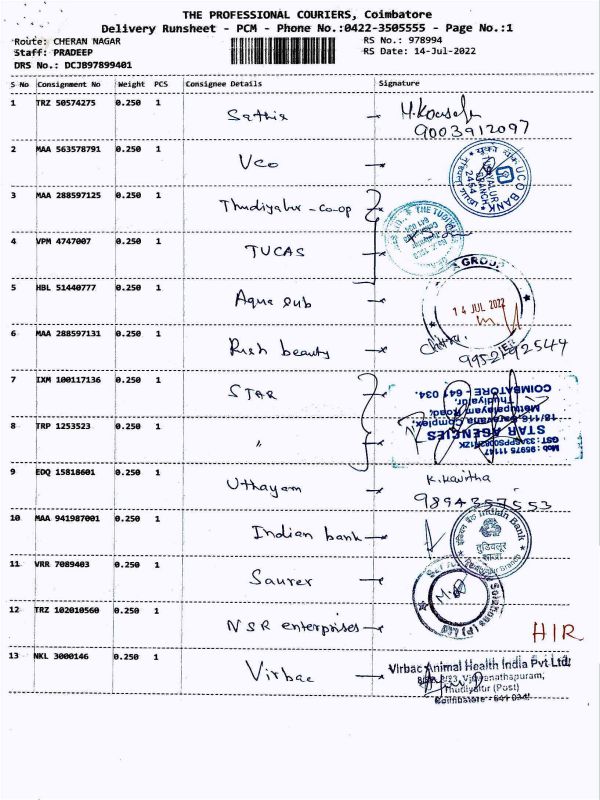 THE PROFESSIONAL COURIERS, Coimbatore
Delivery Runsheet - PCM - Phone No.:0422-3505555 - Page No.:1
Route: CHERAN NAGAR RS No.: 978994
Staff: PRADEEP RS Date: 14-Jul-2022
DRS No.: DCJB97899401
S No Consignment No Weight PCS Consignee Details Signature
1 TRZ 50574275 0.250 1 Sathis
9003912097
2 MAA 563578791 0.250 1 UCO UCO BANK
3 MAA 288597125 0.250 1 Thudiyalur-co-op
4 VPM 4747007 0.250 1 TUCAS
5 HBL 51440777 0.250 1 Aqua sub GROUP 14 JUL 2022
6 MAA 288597131 0.250 1 Rish beauty
7 IXM 100117136 0.250 1 STAR
8 TRP 1253523 0.250 1 "
STAR AGENCIES
Mettupalayam Road,
Thudiyalur,
COIMBATORE - 641 034.
9 EDQ 15818601 0.250 1 Uthayam K. Kavitha
9894357553
10 MAA 941987001 0.250 1 Indian bank Indian Bank
11 VRR 7089403 0.250 1 Saurer
12 TRZ 102010560 0.250 1 NSR enterprises HIR
13 NKL 3000146 0.250 1 Virbac Virbac Animal Health India Pvt Ltd
Thudiyalur (Post)